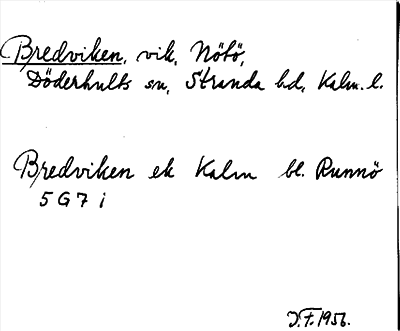 Bredviken, vik, Nötö,
Döderhults sn, Stranda hd, Kalm. l.
Bredviken ek Kalm bl. Runnö
5 G 7 i
J.F. 1956.